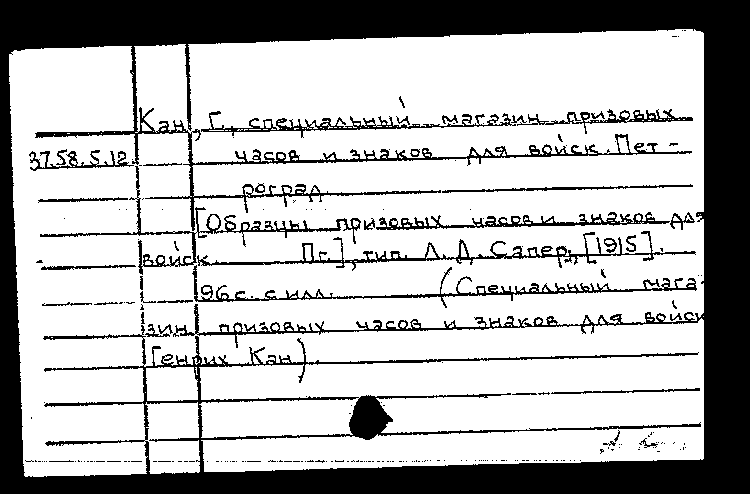 Кан, Г., специальный магазин призовых
37.58.5.12. часов и знаков для войск. Пет-
роград.
[Образцы призовых часов и знаков для
войск. Пг.], тип. Л. Д. Сапер, [1915].
96 с. с илл. (Специальный мага-
зин призовых часов и знаков для войск
Генрих Кан).